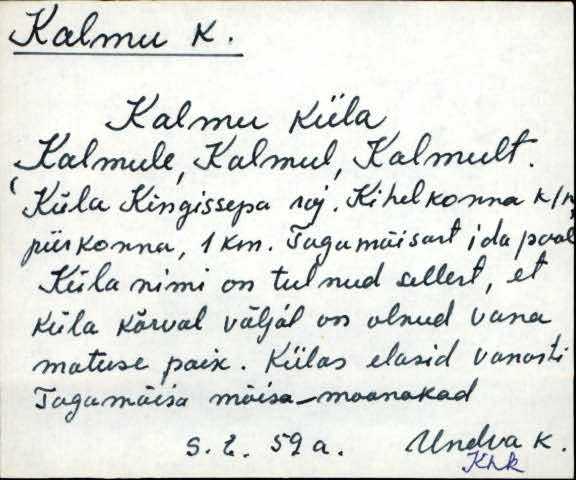 Kalmu k.
Kalmu küla
Kalmule, Kalmul, Kalmult.
Küla Kingissepa raj. Kihelkonna k/n
piirkonna, 1 km. Tagamõisast ida pool
Küla nimi on tulnud sellest, et
küla kõrval väljal on olnud vana
matuse paik. Külas elasid vanasti
Tagamõisa mõisa-moonakad
S. E. 59 a. Undva k.
Khk